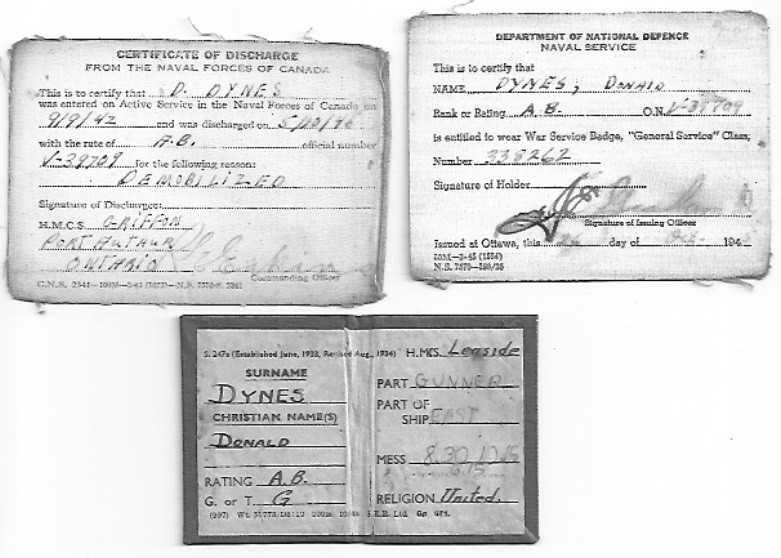 CERTIFICATE OF DISCHARGE
FROM THE NAVAL FORCES OF CANADA
This is to certify that D. DYNES
was entered on Active Service in the Naval Forces of Canada on
9/9/42 and was discharged on 5/10/46
with the rate of A.B. official number
V-39709 for the following reason:
DEMOBILIZED
Signature of Discharges:
H.M.C.S. GRIFFON
PORT AUTHUR
ONTARIO
Commanding Officer
DEPARTMENT OF NATIONAL DEFENCE
NAVAL SERVICE
This is to certify that
NAME DYNES, DONALD
Rank or Rating A.B. O.N. V-39709
is entitled to wear War Service Badge, "General Service" Class,
Number 338262
Signature of Holder
Signature of Issuing Officer
Issued at Ottawa, this day of 194
N.S.
S. 247a (Established June, 1933, Revised Aug., 1934)
SURNAME
DYNES
CHRISTIAN NAME(S)
DONALD
RATING A.B.
G. or T. G
H.M.C.S. Leaside
PART GUNNER
PART OF
SHIP EAST
MESS
RELIGION United.